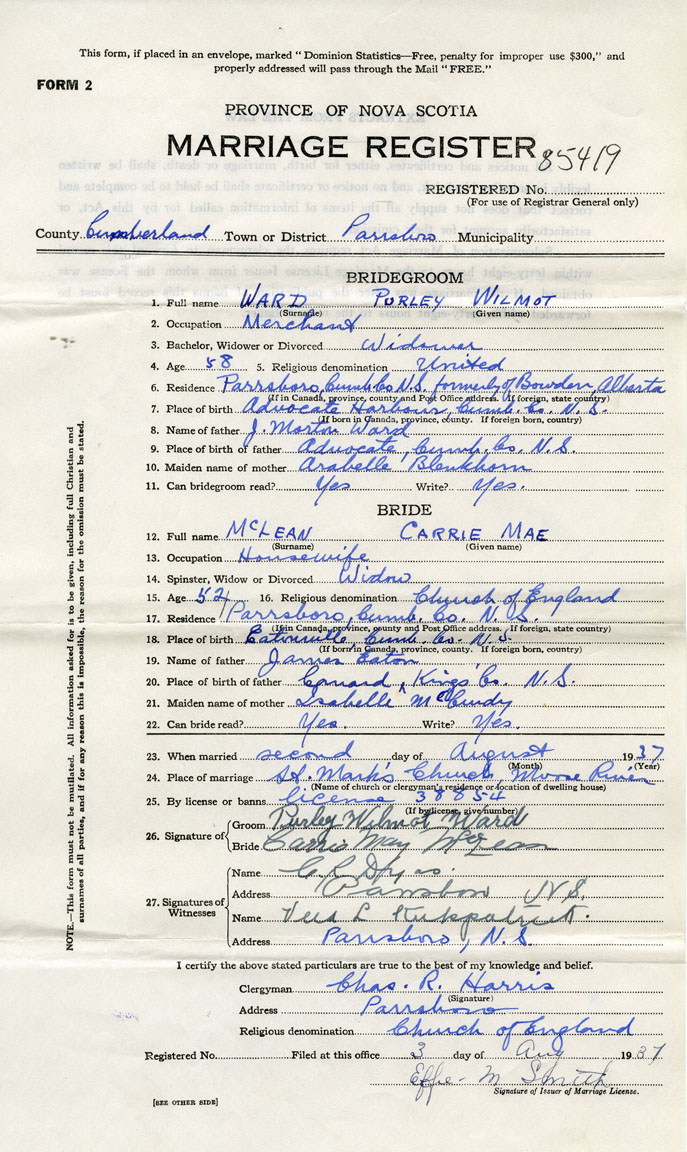 This form, if placed in an envelope, marked "Dominion Statistics—Free, penalty for improper use $300," and
properly addressed will pass through the Mail "FREE."
FORM 2
PROVINCE OF NOVA SCOTIA
MARRIAGE REGISTER 85419
REGISTERED No.
(For use of Registrar General only)
County Cumberland Town or District Parrsboro Municipality
BRIDEGROOM
1. Full name WARD PURLEY WILMOT
(Surname) (Given name)
2. Occupation Merchant
3. Bachelor, Widower or Divorced Widower
4. Age 58 5. Religious denomination United
6. Residence Parrsboro, Cumb. Co. N.S. formerly of Bowden, Alberta
(If in Canada, province, county and Post Office address. If foreign, state country)
7. Place of birth Advocate Harbour, Cumb. Co. N.S.
(If born in Canada, province, county. If foreign born, country)
8. Name of father J. Morton Ward
9. Place of birth of father Advocate, Cumb. Co. N.S.
10. Maiden name of mother Arabelle Blenkhorn
11. Can bridegroom read? Yes Write? Yes.
BRIDE
12. Full name McLEAN CARRIE MAE
(Surname) (Given name)
13. Occupation Housewife
14. Spinster, Widow or Divorced Widow
15. Age 52 16. Religious denomination Church of England
17. Residence Parrsboro, Cumb. Co. N.S.
(If in Canada, province, county and Post Office address. If foreign, state country)
18. Place of birth Eatonville, Cumb. Co. N.S.
(If born in Canada, province, county. If foreign born, country)
19. Name of father James Eaton
20. Place of birth of father Canard, Kings Co. N.S.
21. Maiden name of mother Isabelle McCurdy
22. Can bride read? Yes. Write? Yes.
23. When married second day of August 1937
(Month) (Year)
24. Place of marriage St. Mark's Church, Moose River
(Name of church or clergyman's residence or location of dwelling house)
25. By license or banns license 38854
(If by license, give number)
26. Signature of Groom Purley Wilmot Ward
Bride Carrie May McLean
27. Signatures of Witnesses
Name
Address Parrsboro N.S.
Name Vera L Kirkpatrick.
Address Parrsboro, N.S.
I certify the above stated particulars are true to the best of my knowledge and belief.
Clergyman Chas. R. Harris
(Signature)
Address Parrsboro
Religious denomination Church of England
Registered No. Filed at this office 3 day of Aug 1937
Effie M Smith
Signature of Issuer of Marriage License.
[SEE OTHER SIDE]
NOTE.—This form must not be mutilated. All information asked for is to be given, including full Christian and
surnames of all parties, and if for any reason this is impossible, the reason for the omission must be stated.